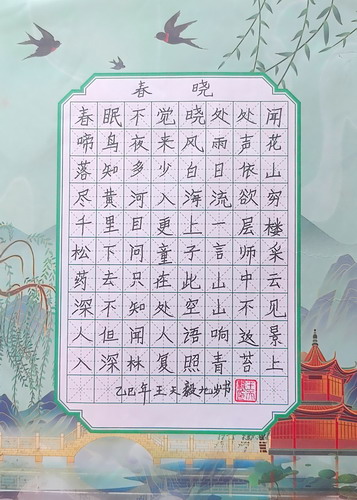 春 晓
春眠不觉晓处处闻
啼鸟夜来风雨声花
落知多少白日依山
尽黄河入海流欲穷
千里目更上一层楼
松下问童子言师采
药去只在此山中云
深不知处空山不见
人但闻人语响返景
入深林复照青苔上
乙巳年王天毅九岁书